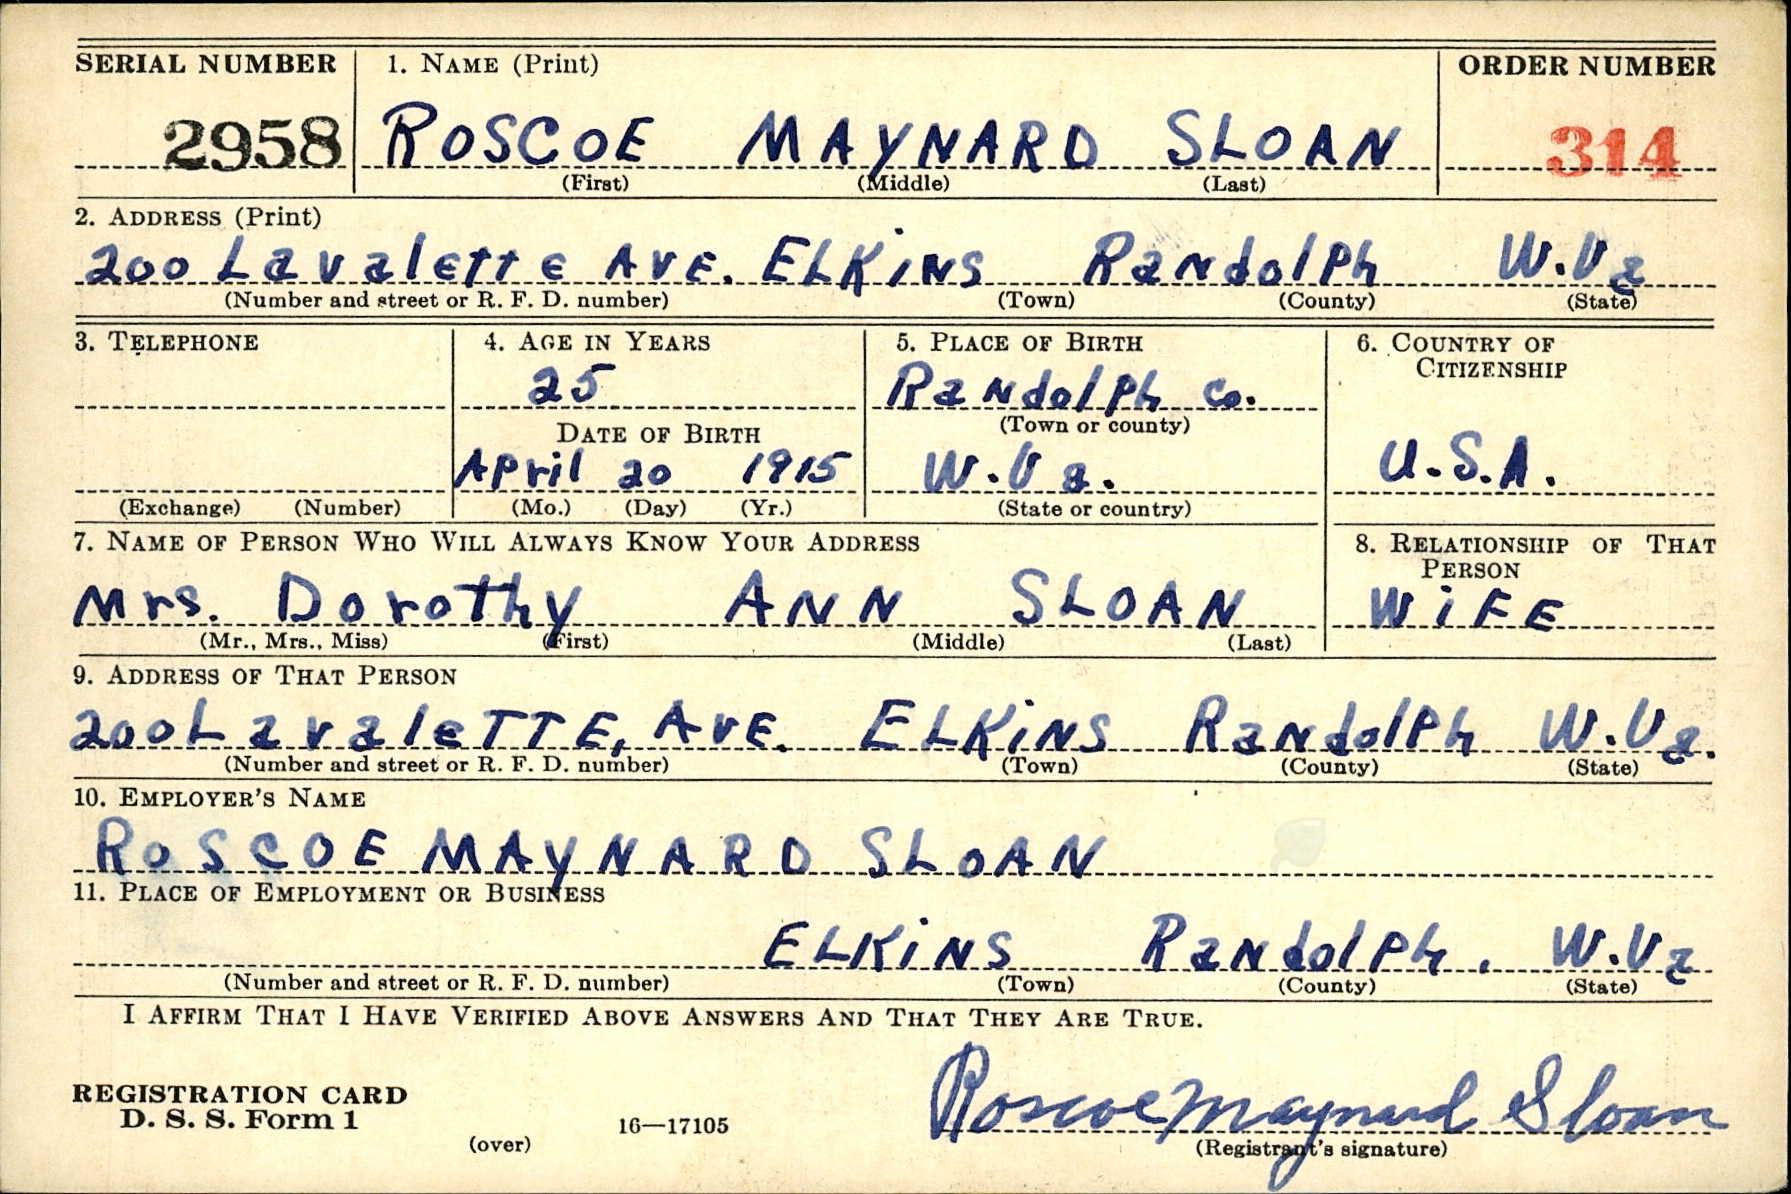 SERIAL NUMBER 1. NAME (Print) ORDER NUMBER
2958 ROSCOE MAYNARD SLOAN 314
(First) (Middle) (Last)
2. ADDRESS (Print)
200 Lavalette AVE. ELKiNS Randolph W.Va
(Number and street or R. F. D. number) (Town) (County) (State)
3. TELEPHONE 4. AGE IN YEARS 5. PLACE OF BIRTH 6. COUNTRY OF
CITIZENSHIP
25 Randolph Co.
(Town or county)
DATE OF BIRTH
April 20 1915 W.Va. U.S.A.
(Exchange) (Number) (Mo.) (Day) (Yr.) (State or country)
7. NAME OF PERSON WHO WILL ALWAYS KNOW YOUR ADDRESS 8. RELATIONSHIP OF THAT
PERSON
Mrs. Dorothy ANN SLOAN WiFE
(Mr., Mrs., Miss) (First) (Middle) (Last)
9. ADDRESS OF THAT PERSON
200 LavaleTTE, AvE. ELKiNS Randolph W.Va.
(Number and street or R. F. D. number) (Town) (County) (State)
10. EMPLOYER'S NAME
ROSCOE MAYNARD SLOAN
11. PLACE OF EMPLOYMENT OR BUSINESS
ELKiNS Randolph. W.Va
(Number and street or R. F. D. number) (Town) (County) (State)
I AFFIRM THAT I HAVE VERIFIED ABOVE ANSWERS AND THAT THEY ARE TRUE.
REGISTRATION CARD
D. S. S. Form 1 16—17105 Roscoe Maynard Sloan
(over) (Registrant's signature)